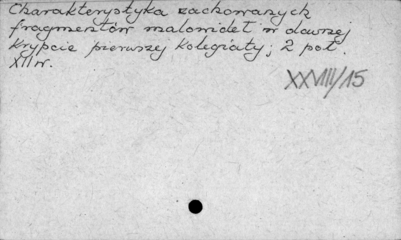 Charakterystyka zachowanych
fragmentów malowideł w dawnej
krypcie pierwszej kolegiaty; 2 poł.
XII w.
XXVIII/15